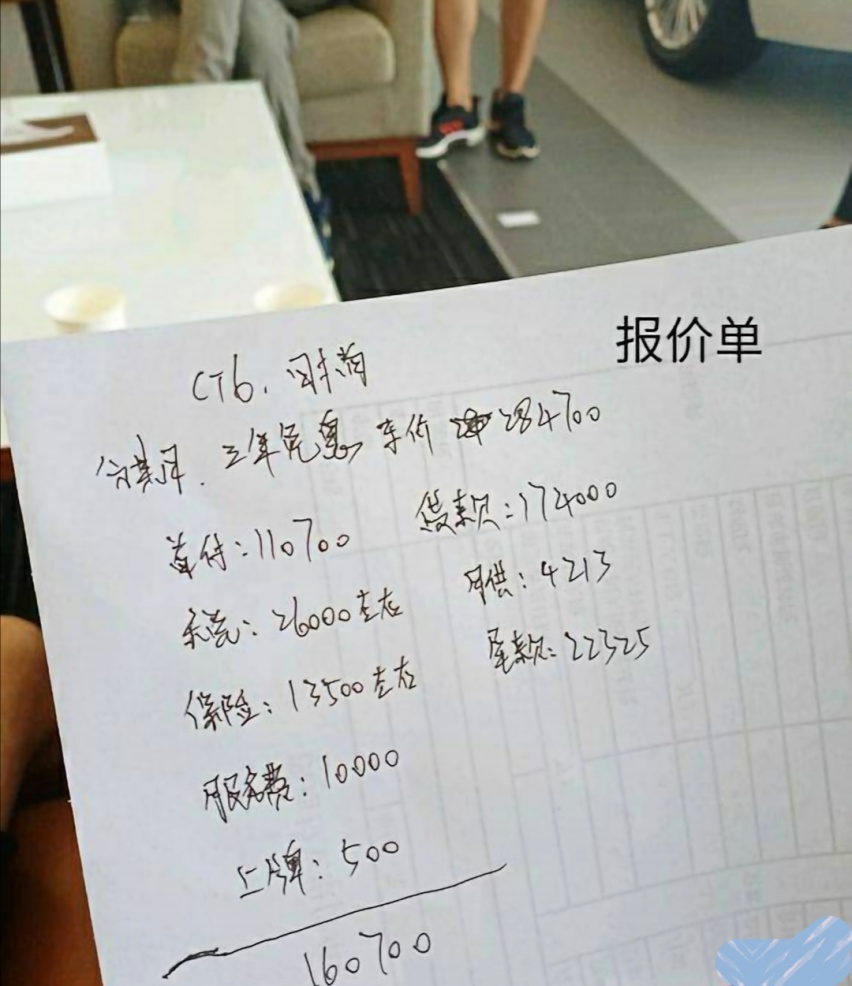 报价单
CT6. 时尚
分其月. 三年免息 车价 284700
首付:110700 贷款:174000
税:26000左右 月供:4213
保险:13500左右 尾款:22325
服务费:10000
上牌:500
160700